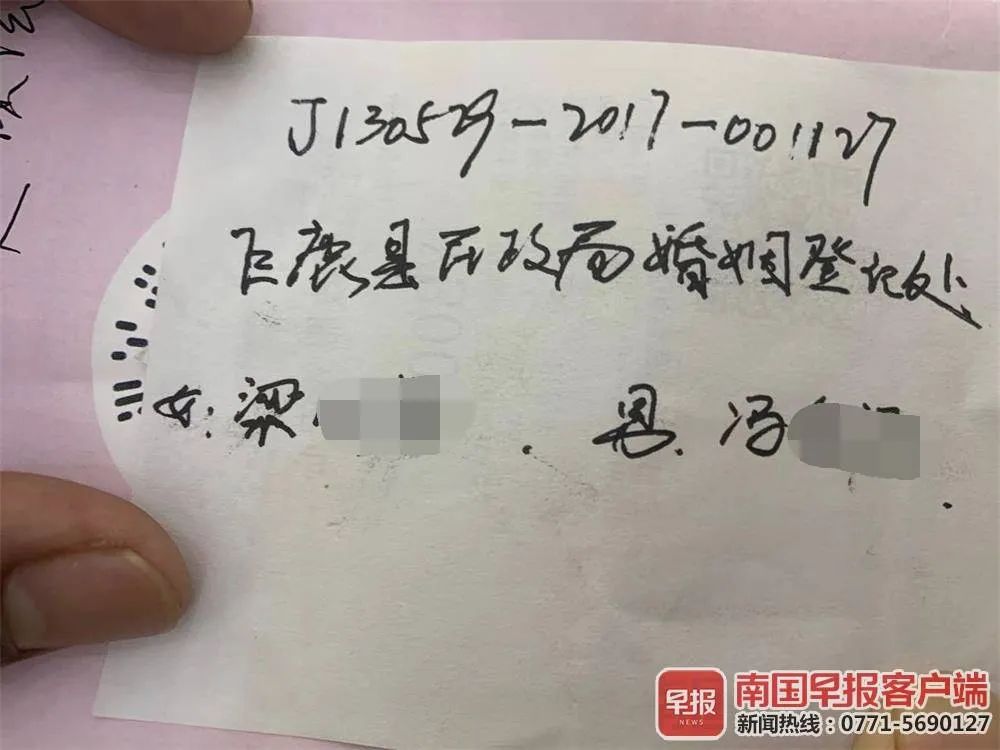 J130529-2017-001127
巨鹿县民政局婚姻登记处
女:梁
男.冯
早报
NEWS
南国早报客户端
新闻热线:0771-5690127